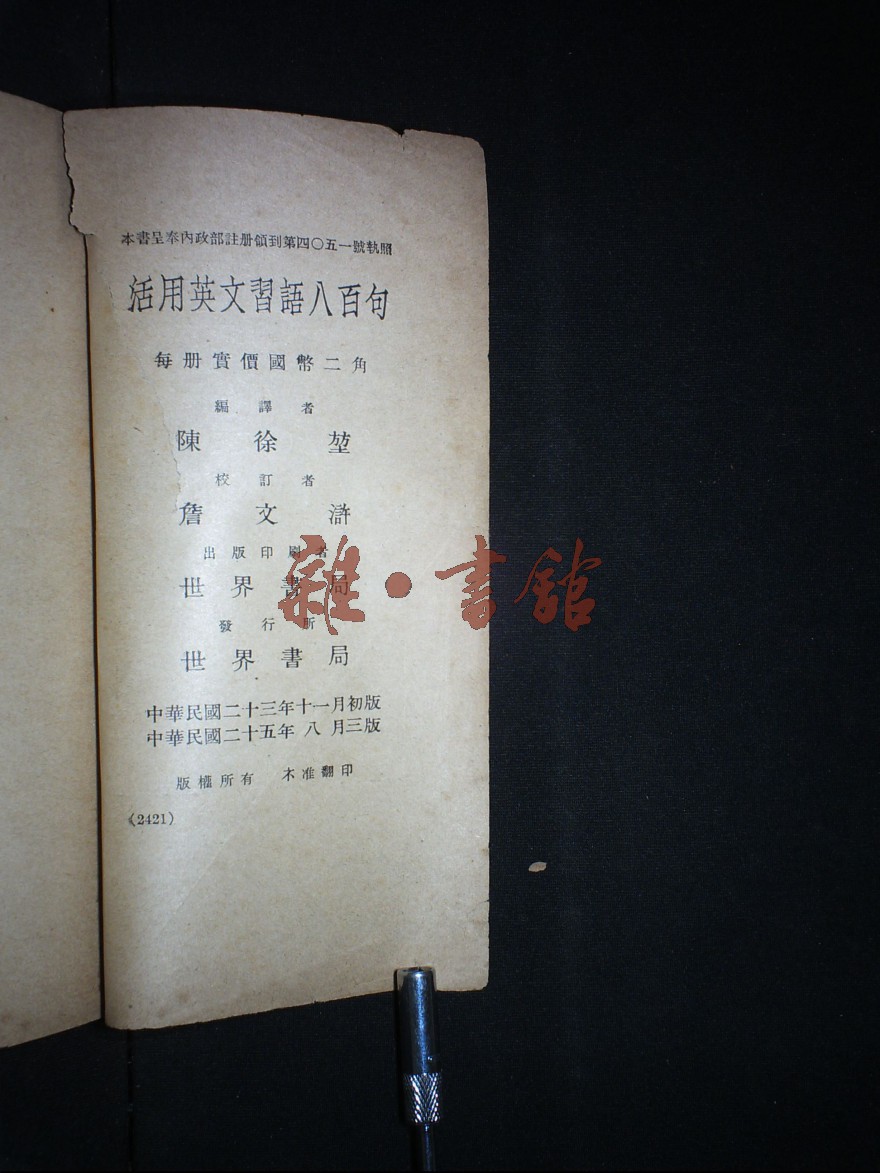 本書呈奉內政部註册領到第四〇五一號執照
活用英文習語八百句
每册實價國幣二角
編譯者
陳徐堃
校訂者
詹文滸
出版印刷者
世界書局
發行所
世界書局
中華民國二十三年十一月初版
中華民國二十五年八月三版
版權所有 不准翻印
(2421)
雜·書舘